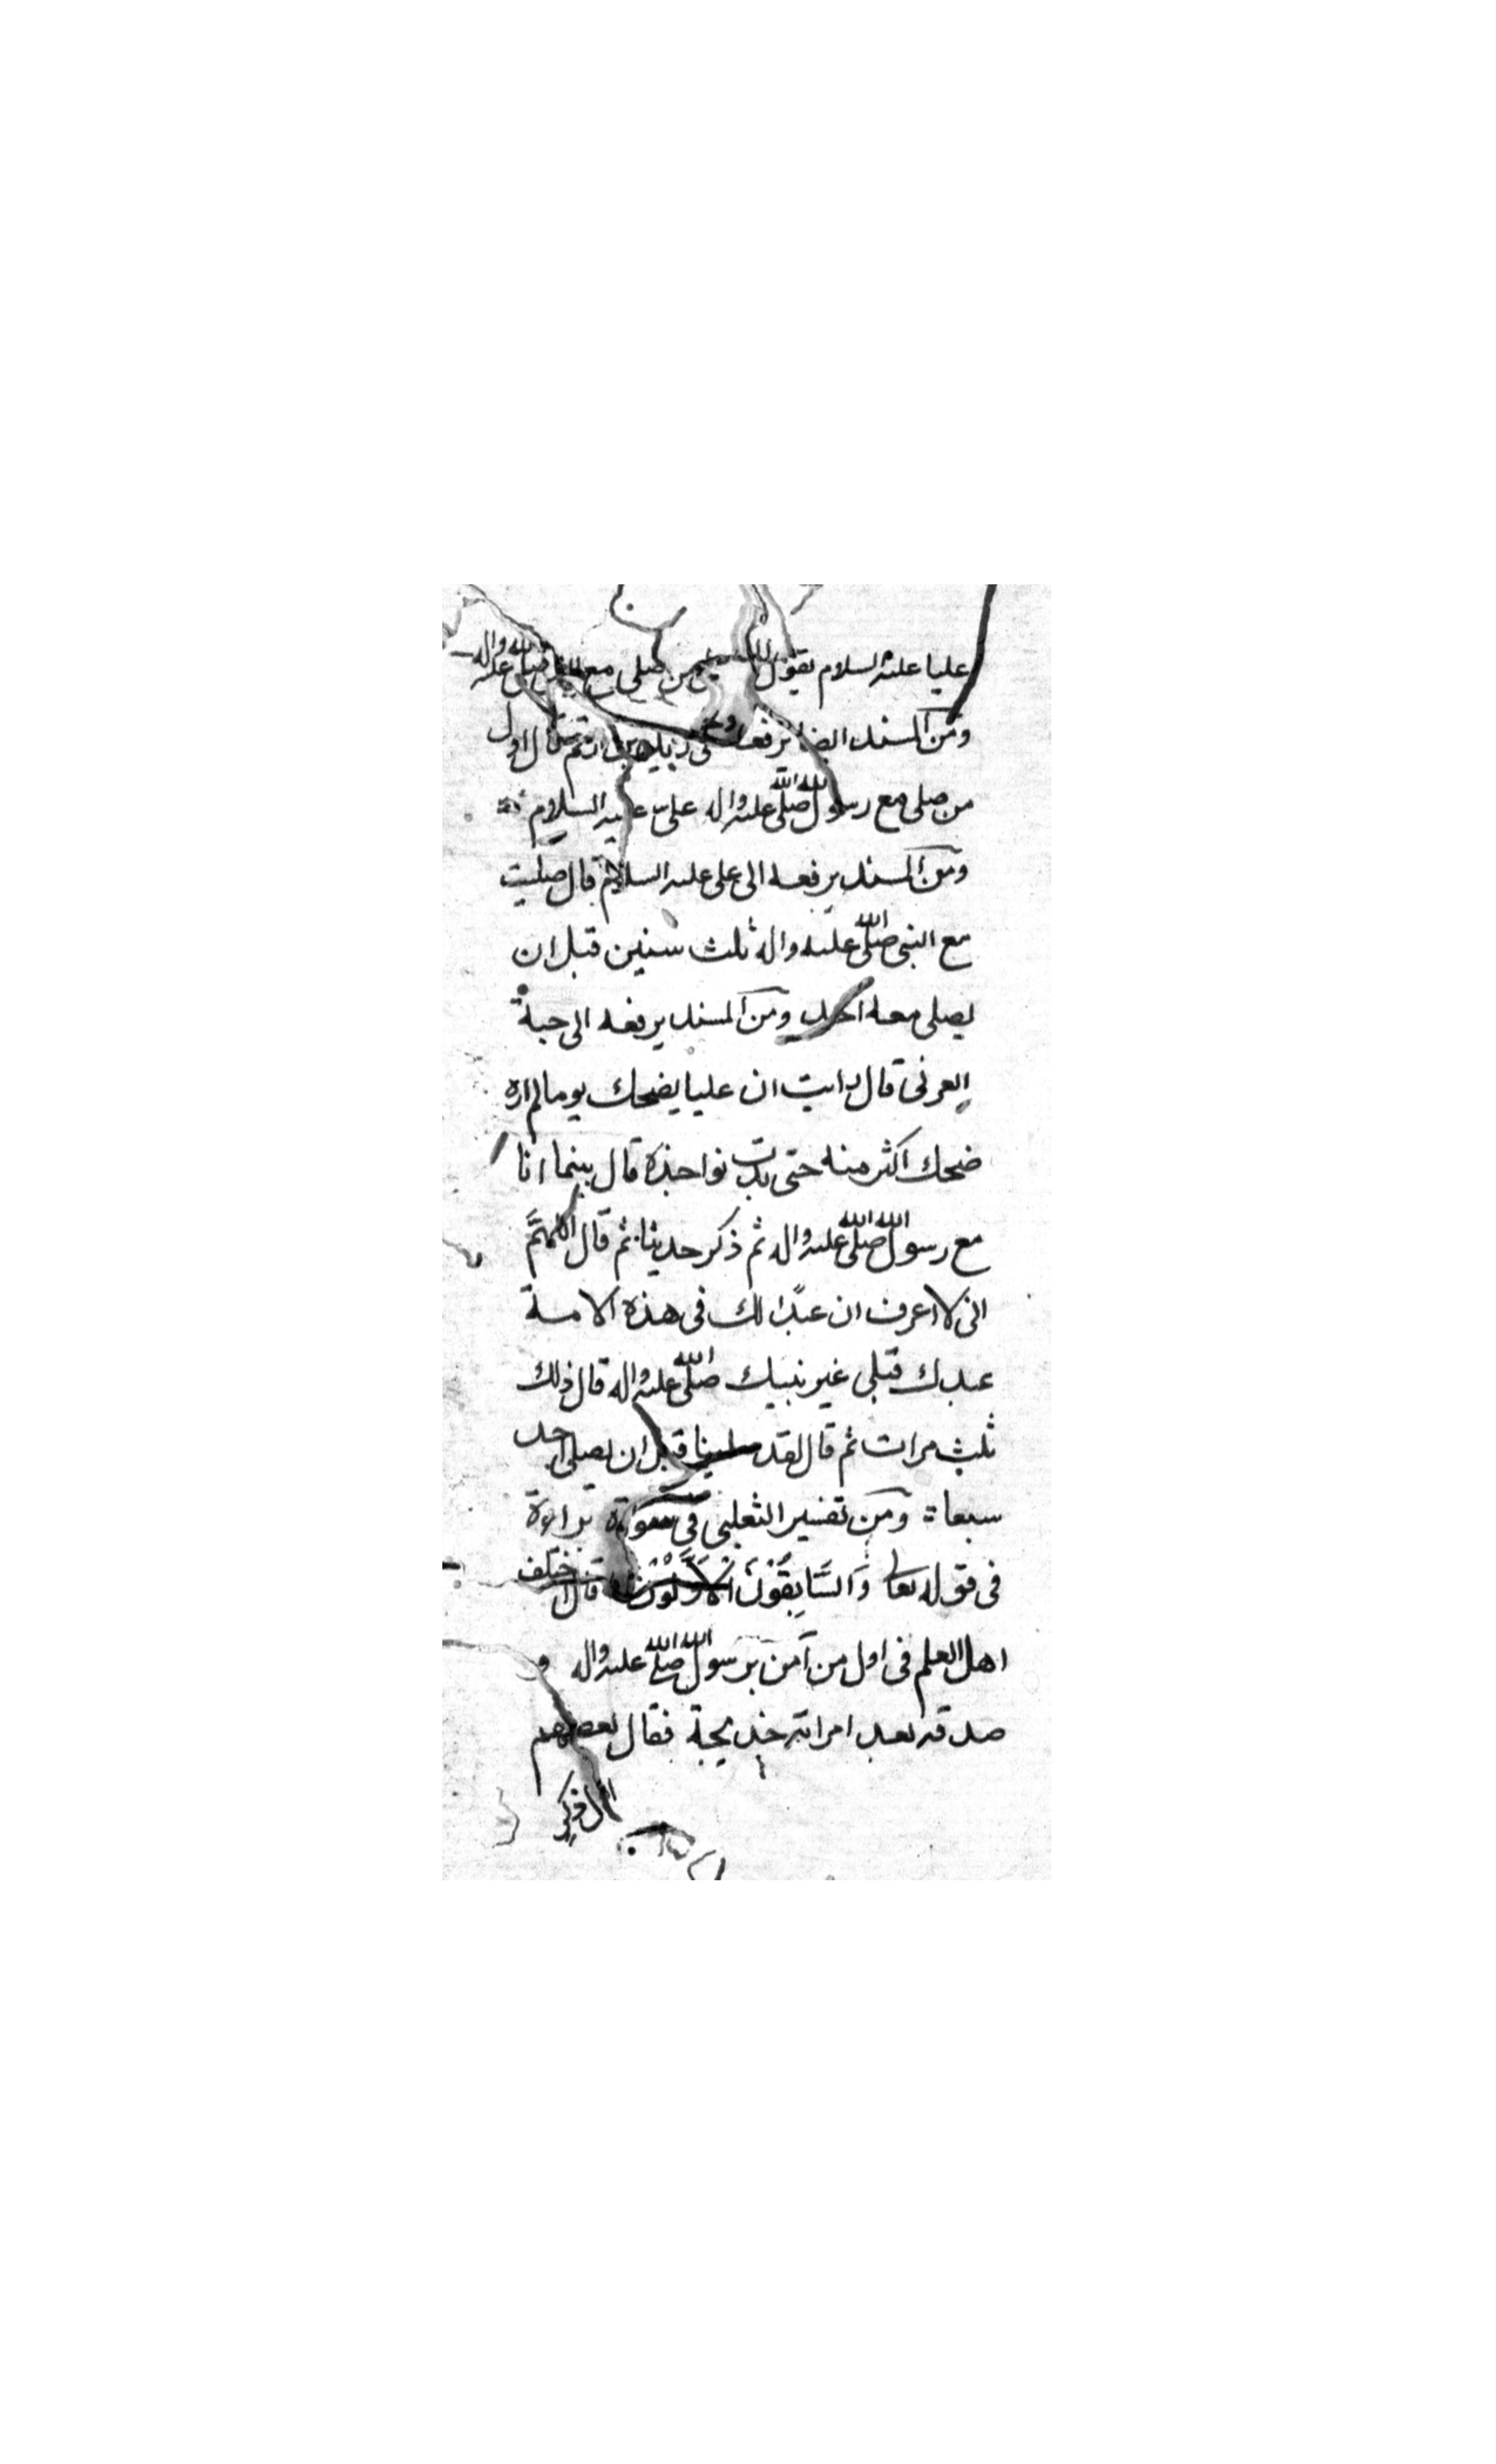 عليا عليه السلام يقول من صلى مع صلى الله عليه واله
ومن المسند ايضا يرفعه الى زيد بن ارقم قال اول
من صلى مع رسول الله صلى الله عليه واله على عليه السلام
ومن المسند يرفعه الى على عليه السلام قال صليت
مع النبى صلى الله عليه واله ثلث سنين قبل ان
يصلى معه احد ومن المسند يرفعه الى حبة
العرنى قال رايت ان عليا يضحك يوما لم اره
ضحك اكثر منه حتى بدت نواجذه قال بينما انا
مع رسول الله صلى الله عليه واله ثم ذكر حديثا ثم قال اللهم
انى لا اعرف ان عبدا لك فى هذه الامة
عبدك قبلى غير نبيك صلى الله عليه واله قال ذلك
ثلث مرات ثم قال لقد صلينا قبل ان يصلى احد
سبعا ومن تفسير الثعلبى فى سورة براءة
فى قوله تعا وَالسَّابِقُوْنَ الْاَوَّلُوْنَ قال اختلف
اهل العلم فى اول من آمن برسول الله صلى الله عليه واله و
صدقه بعد امراته خديجة فقال بعضهم
اول ذكر